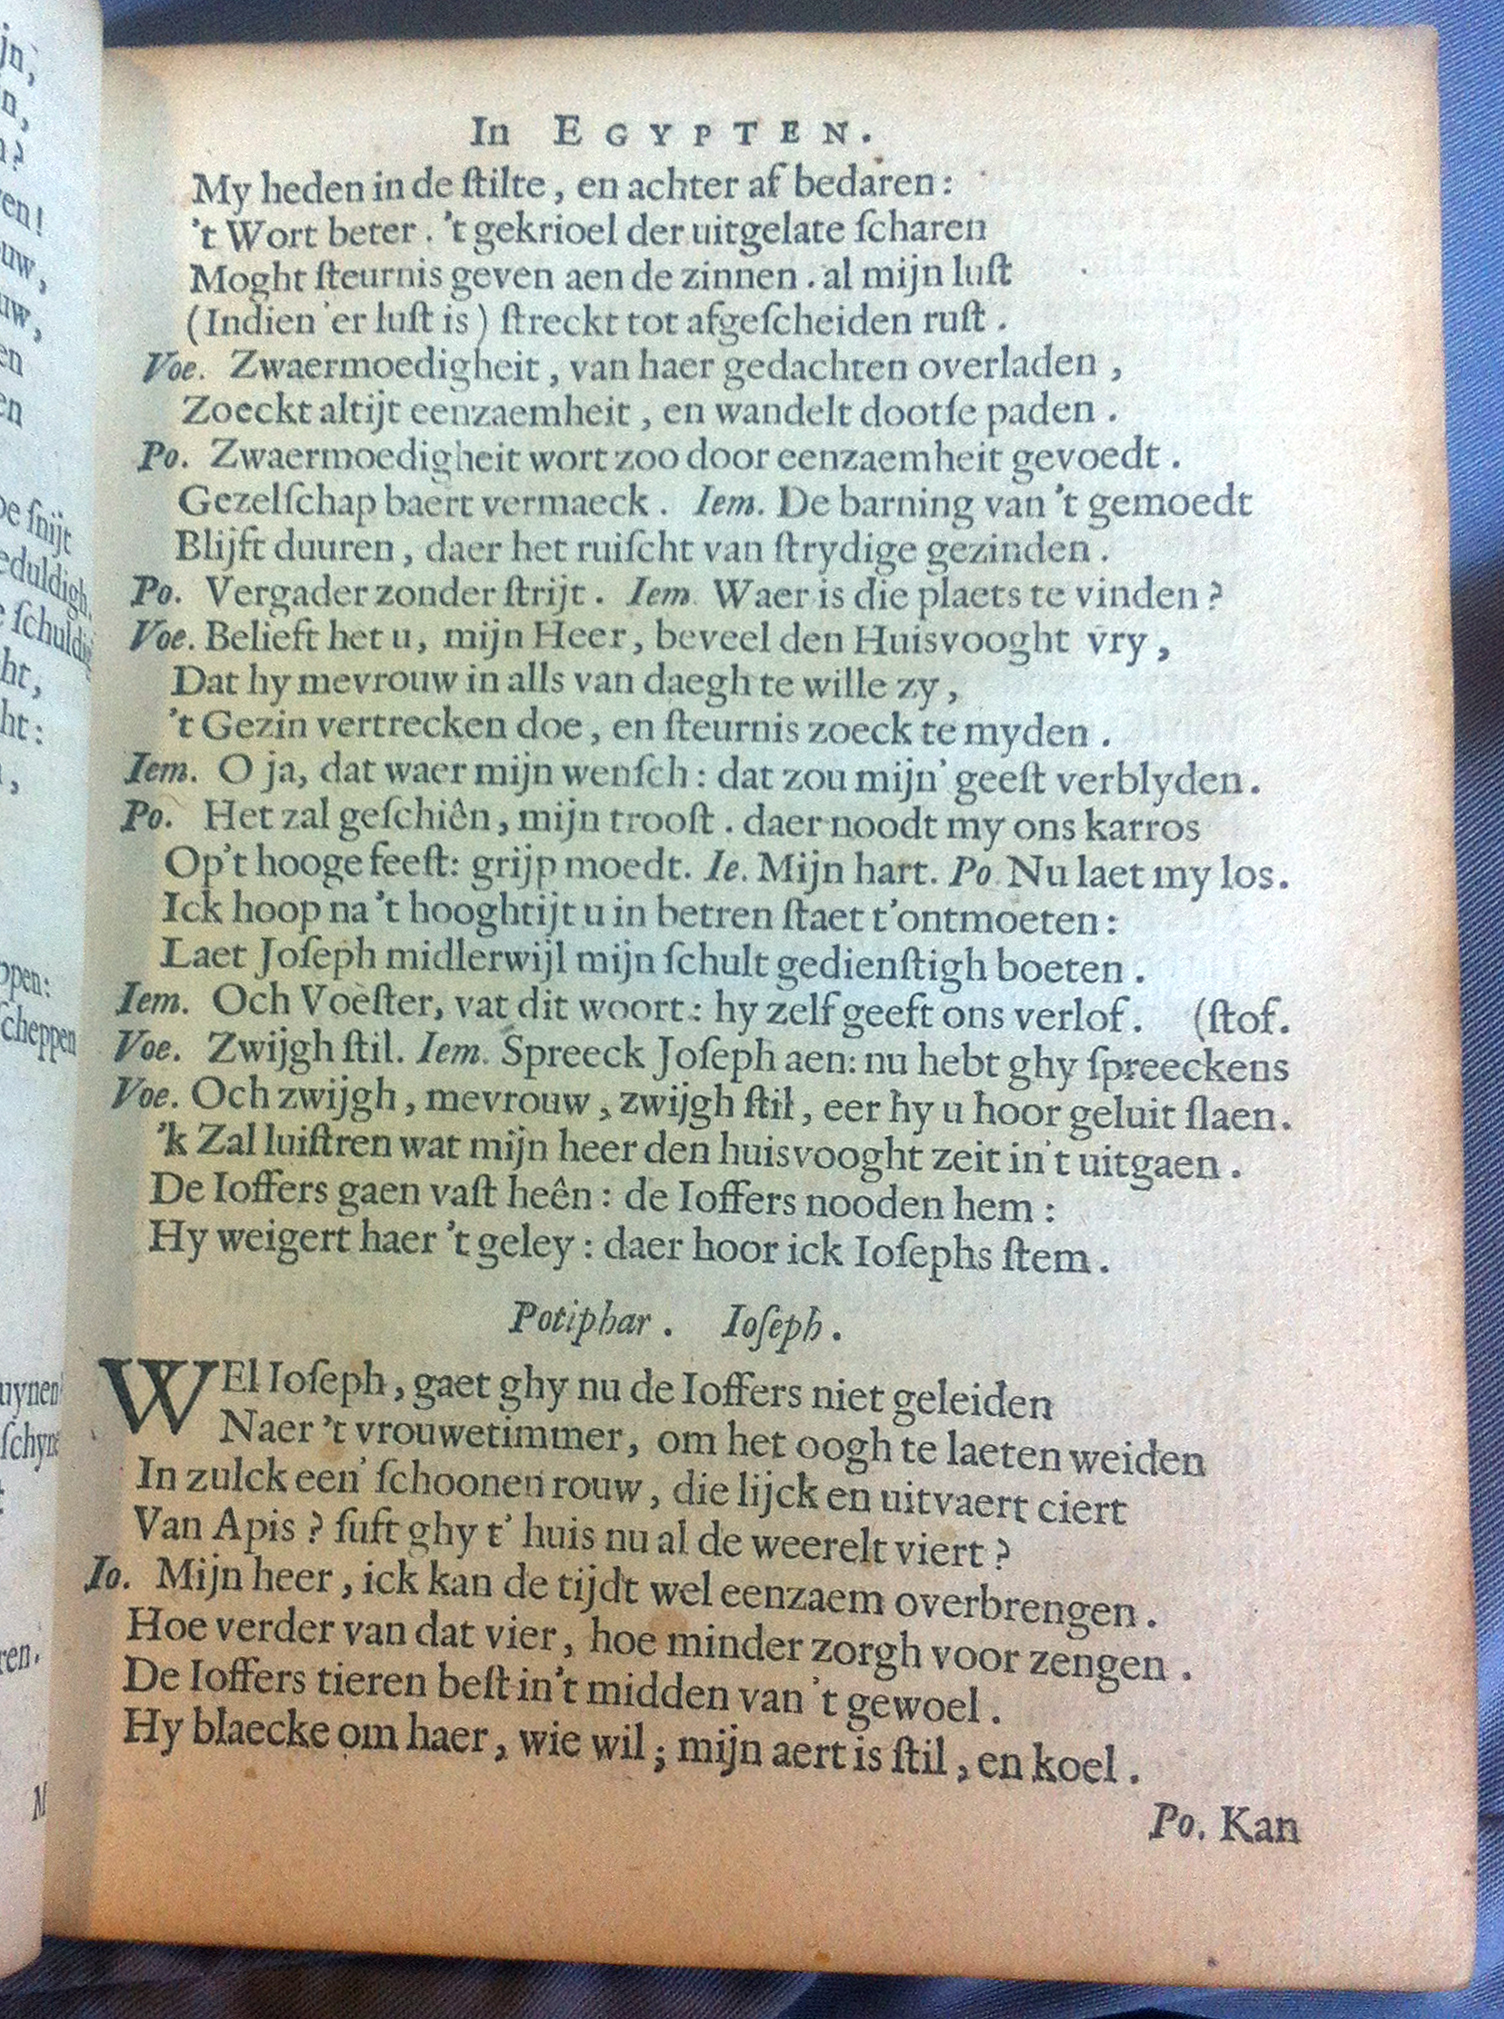 In EGYPTEN.
My heden in de ſtilte, en achter af bedaren:
't Wort beter. 't gekrioel der uitgelate ſcharen
Moght ſteurnis geven aen de zinnen. al mijn luſt
(Indien 'er luſt is) ſtreckt tot afgeſcheiden ruſt.
Voe. Zwaermoedigheit, van haer gedachten overladen,
Zoeckt altijt eenzaemheit, en wandelt dootſe paden.
Po. Zwaermoedigheit wort zoo door eenzaemheit gevoedt.
Gezelſchap baert vermaeck. Iem. De barning van 't gemoedt
Blijft duuren, daer het ruiſcht van ſtrydige gezinden.
Po. Vergader zonder ſtrijt. Iem. Waer is die plaets te vinden?
Voe. Belieft het u, mijn Heer, beveel den Huisvooght vry,
Dat hy mevrouw in alls van daegh te wille zy,
't Gezin vertrecken doe, en ſteurnis zoeck te myden.
Iem. O ja, dat waer mijn wenſch: dat zou mijn' geeſt verblyden.
Po. Het zal geſchiên, mijn trooſt. daer noodt my ons karros
Op't hooge feeſt: grijp moedt. Ie. Mijn hart. Po. Nu laet my los.
Ick hoop na 't hooghtijt u in betren ſtaet t'ontmoeten:
Laet Joſeph midlerwijl mijn ſchult gedienſtigh boeten.
Iem. Och Voeſter, vat dit woort: hy zelf geeft ons verlof. (ſtof.
Voe. Zwijgh ſtil. Iem. Spreeck Joſeph aen: nu hebt ghy ſpreeckens
Voe. Och zwijgh, mevrouw, zwijgh ſtil, eer hy u hoor geluit ſlaen.
'k Zal luiſtren wat mijn heer den huisvooght zeit in 't uitgaen.
De Ioffers gaen vaſt heên: de Ioffers nooden hem:
Hy weigert haer 't geley: daer hoor ick Ioſephs ſtem.
Potiphar. Ioſeph.
WEl Ioſeph, gaet ghy nu de Ioffers niet geleiden
Naer 't vrouwetimmer, om het oogh te laeten weiden
In zulck een' ſchoonen rouw, die lijck en uitvaert ciert
Van Apis? ſuft ghy t' huis nu al de weerelt viert?
Io. Mijn heer, ick kan de tijdt wel eenzaem overbrengen.
Hoe verder van dat vier, hoe minder zorgh voor zengen.
De Ioffers tieren beſt in't midden van 't gewoel.
Hy blaecke om haer, wie wil; mijn aert is ſtil, en koel.
Po. Kan